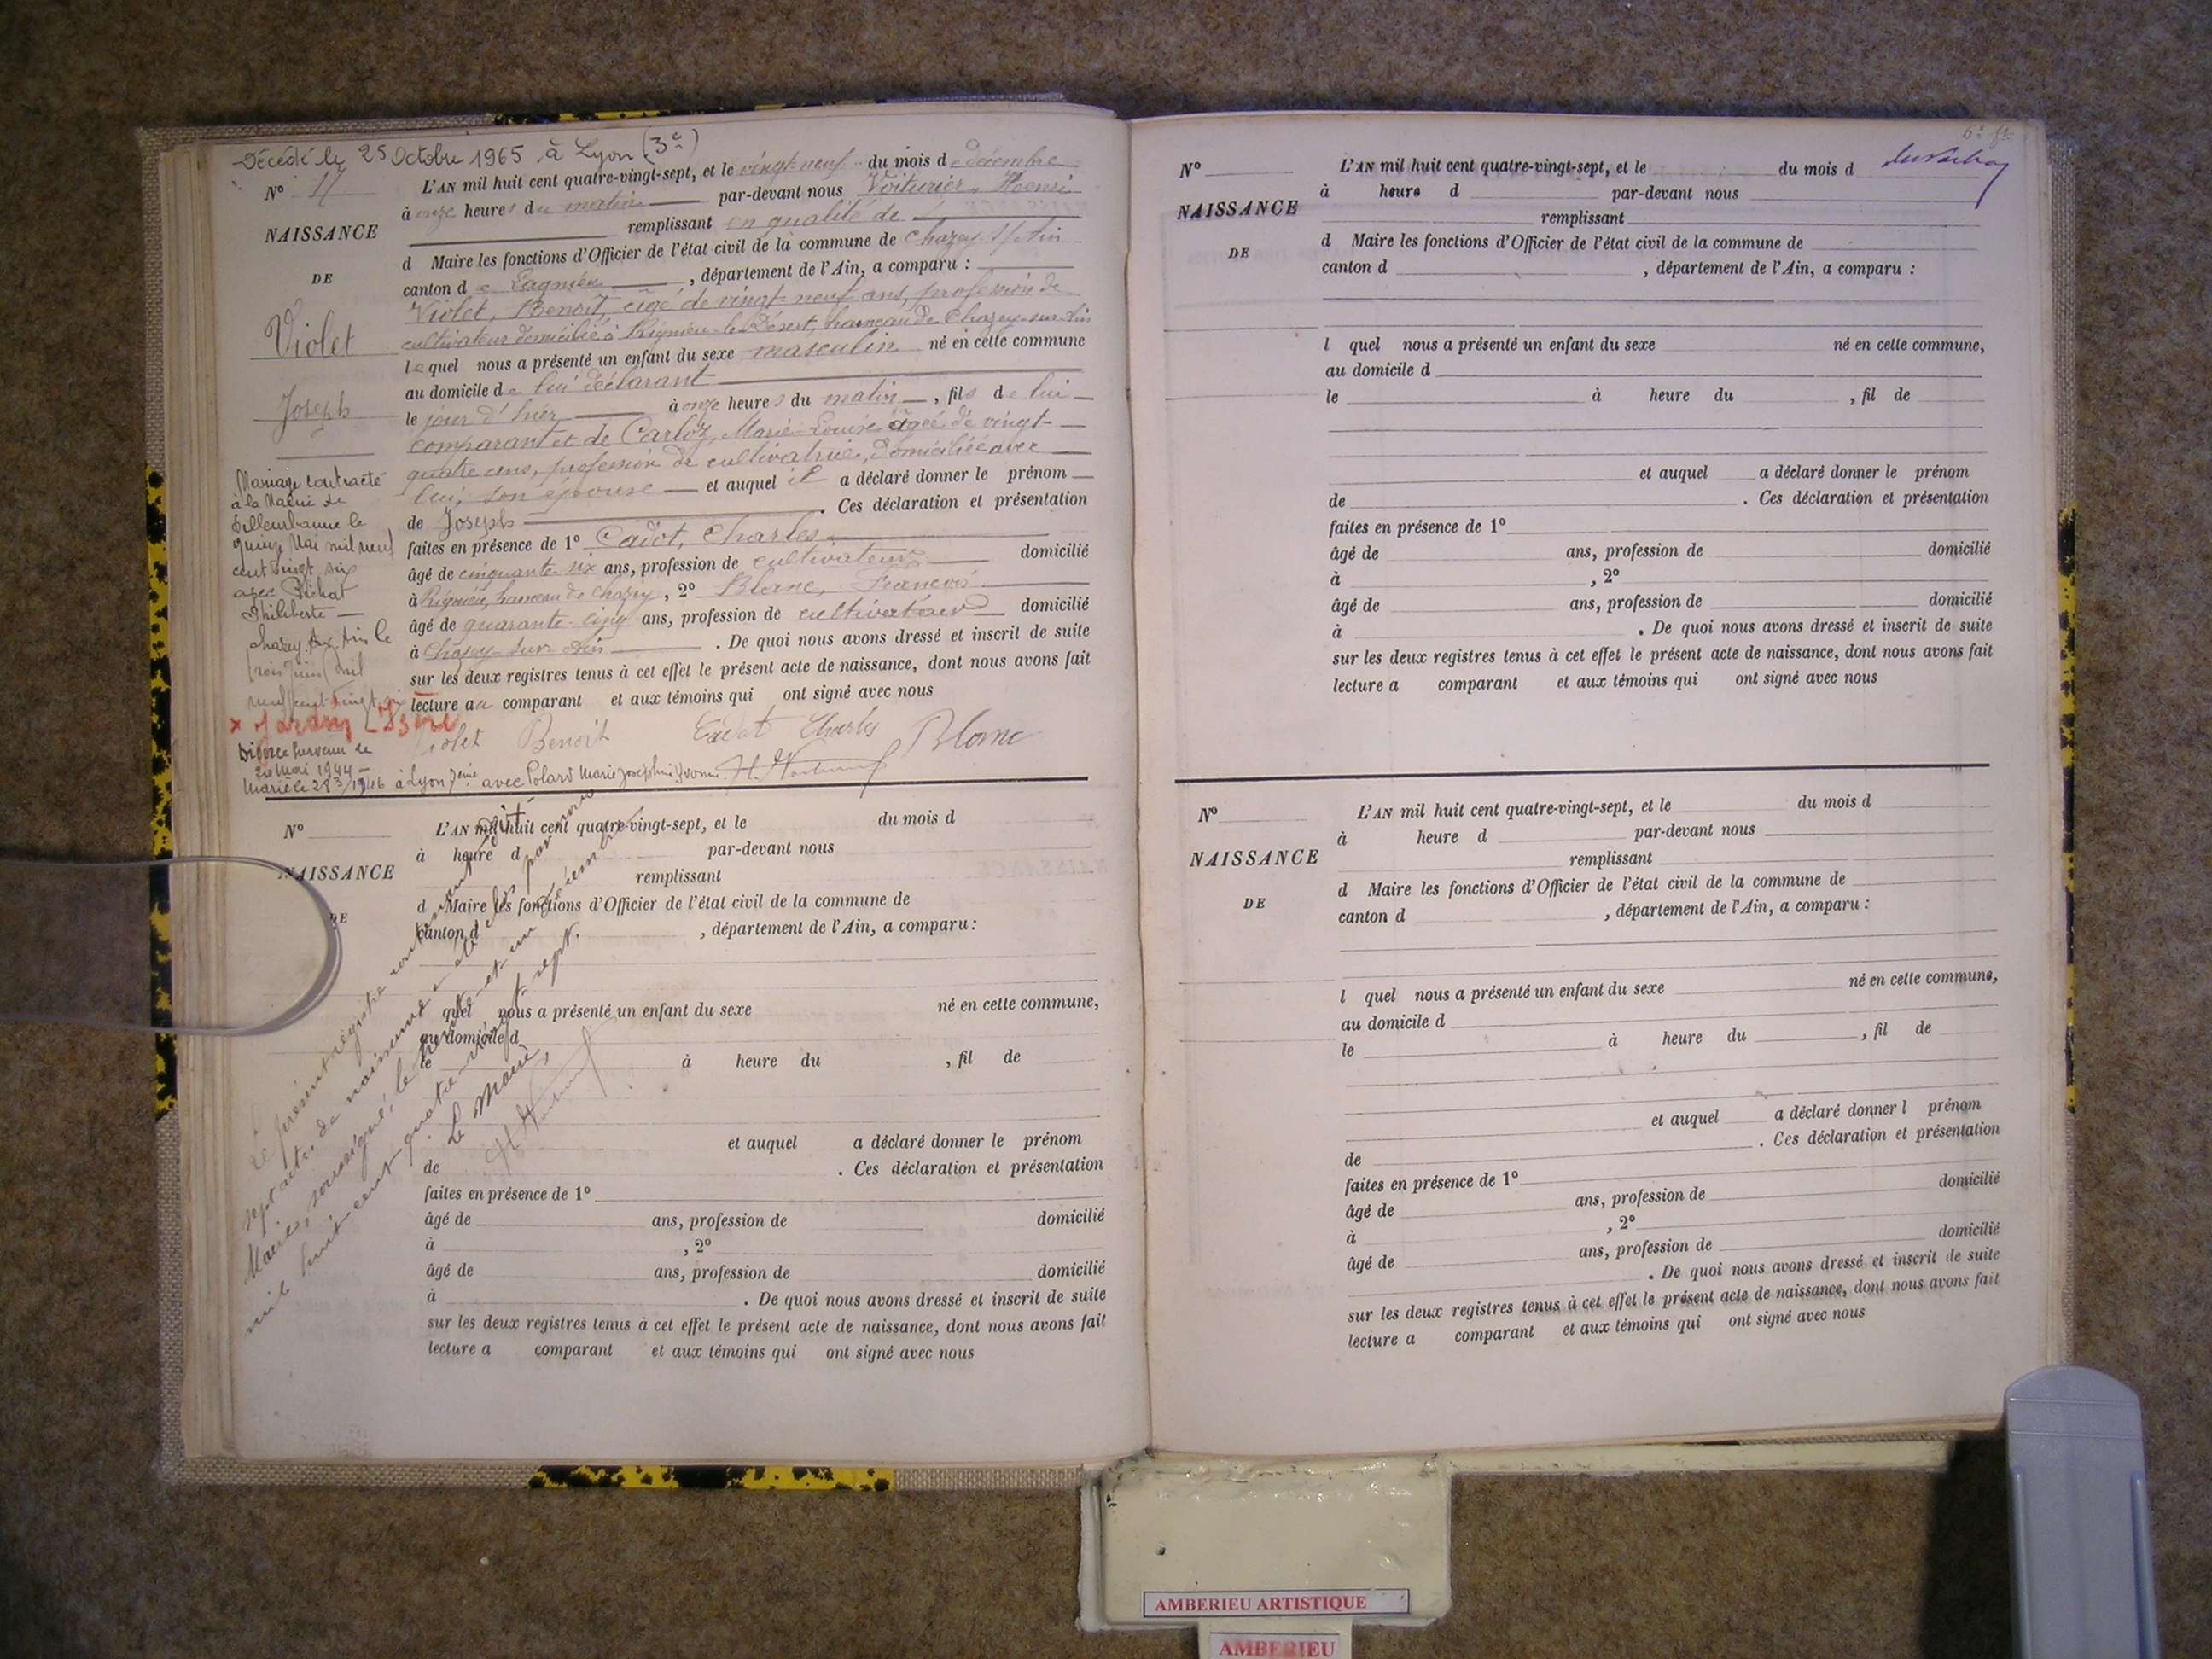 Décédé le 25 Octobre 1965 à Lyon (3e)
N° 17
NAISSANCE
DE
Violet
Joseph
L'AN mil huit cent quatre-vingt-sept, et le vingt-neuf du mois de décembre
à onze heures du matin par-devant nous Voiturier Henri
remplissant en qualité de
d Maire les fonctions d'Officier de l'état civil de la commune de Chazey-s/-Ain
canton de Lagnieu, département de l'Ain, a comparu :
Violet, Benoît, âgé de vingt-neuf ans, profession de
cultivateur domicilié à Rignieu-le-Désert, hameau de Chazey-sur-Ain
lequel nous a présenté un enfant du sexe masculin né en cette commune
au domicile de lui déclarant
le jour d'hier à onze heures du matin, fils de lui
comparant et de Carloz, Marie-Louise âgée de vingt-
quatre ans, profession de cultivatrice, domiciliée avec
lui, son épouse et auquel il a déclaré donner le prénom
de Joseph. Ces déclaration et présentation
faites en présence de 1° Cadot, Charles
âgé de cinquante-six ans, profession de cultivateur domicilié
à Rignieu, hameau de Chazey, 2° Blanc, Francois
âgé de quarante-cinq ans, profession de cultivateur domicilié
à Chazey-sur-Ain. De quoi nous avons dressé et inscrit de suite
sur les deux registres tenus à cet effet le présent acte de naissance, dont nous avons fait
lecture au comparant et aux témoins qui ont signé avec nous
Violet Benoit Cadot Charles Blanc
Mariage contracté
à la Mairie de
Villeurbanne le
quinze Mai mil neuf
cent vingt six
avec Pichat
Philiberte
Chazey sur Ain le
trois Juin mil
neuf cent vingt six
x Jardin - Isère
Divorce survenu le
20 Mai 1944
Marié le 28/3/1946 à Lyon 7ème avec Polard Marie Josephine Yvonne
N°
NAISSANCE
DE
L'AN mil huit cent quatre-vingt-sept, et le du mois d
à heure d par-devant nous
remplissant
d Maire les fonctions d'Officier de l'état civil de la commune de
canton d , département de l'Ain, a comparu :
quel nous a présenté un enfant du sexe né en cette commune,
au domicile d
le à heure du , fil de
et auquel a déclaré donner le prénom
de . Ces déclaration et présentation
faites en présence de 1°
âgé de ans, profession de domicilié
à , 2°
âgé de ans, profession de domicilié
à . De quoi nous avons dressé et inscrit de suite
sur les deux registres tenus à cet effet le présent acte de naissance, dont nous avons fait
lecture a comparant et aux témoins qui ont signé avec nous
Le présent registre contenant dix-
sept actes de naissance a été clos par nous
Maire, soussigné, le trente-et-un décembre
mil huit cent quatre-vingt-sept.
Le Maire,
N°
NAISSANCE
DE
L'AN mil huit cent quatre-vingt-sept, et le du mois d
à heure d par-devant nous
remplissant
d Maire les fonctions d'Officier de l'état civil de la commune de
canton d , département de l'Ain, a comparu :
l quel nous a présenté un enfant du sexe né en cette commune,
au domicile d
le à heure du , fil de
et auquel a déclaré donner le prénom
de . Ces déclaration et présentation
faites en présence de 1°
âgé de ans, profession de domicilié
à , 2°
âgé de ans, profession de domicilié
à . De quoi nous avons dressé et inscrit de suite
sur les deux registres tenus à cet effet le présent acte de naissance, dont nous avons fait
lecture a comparant et aux témoins qui ont signé avec nous
N°
NAISSANCE
DE
L'AN mil huit cent quatre-vingt-sept, et le du mois d
à heure d par-devant nous
remplissant
d Maire les fonctions d'Officier de l'état civil de la commune de
canton d , département de l'Ain, a comparu :
l quel nous a présenté un enfant du sexe né en cette commune,
au domicile d
le à heure du , fil de
et auquel a déclaré donner l prénom
de . Ces déclaration et présentation
faites en présence de 1°
âgé de ans, profession de domicilié
à , 2°
âgé de ans, profession de domicilié
. De quoi nous avons dressé et inscrit de suite
sur les deux registres tenus à cet effet le présent acte de naissance, dont nous avons fait
lecture a comparant et aux témoins qui ont signé avec nous
AMBERIEU ARTISTIQUE
AMBERIEU